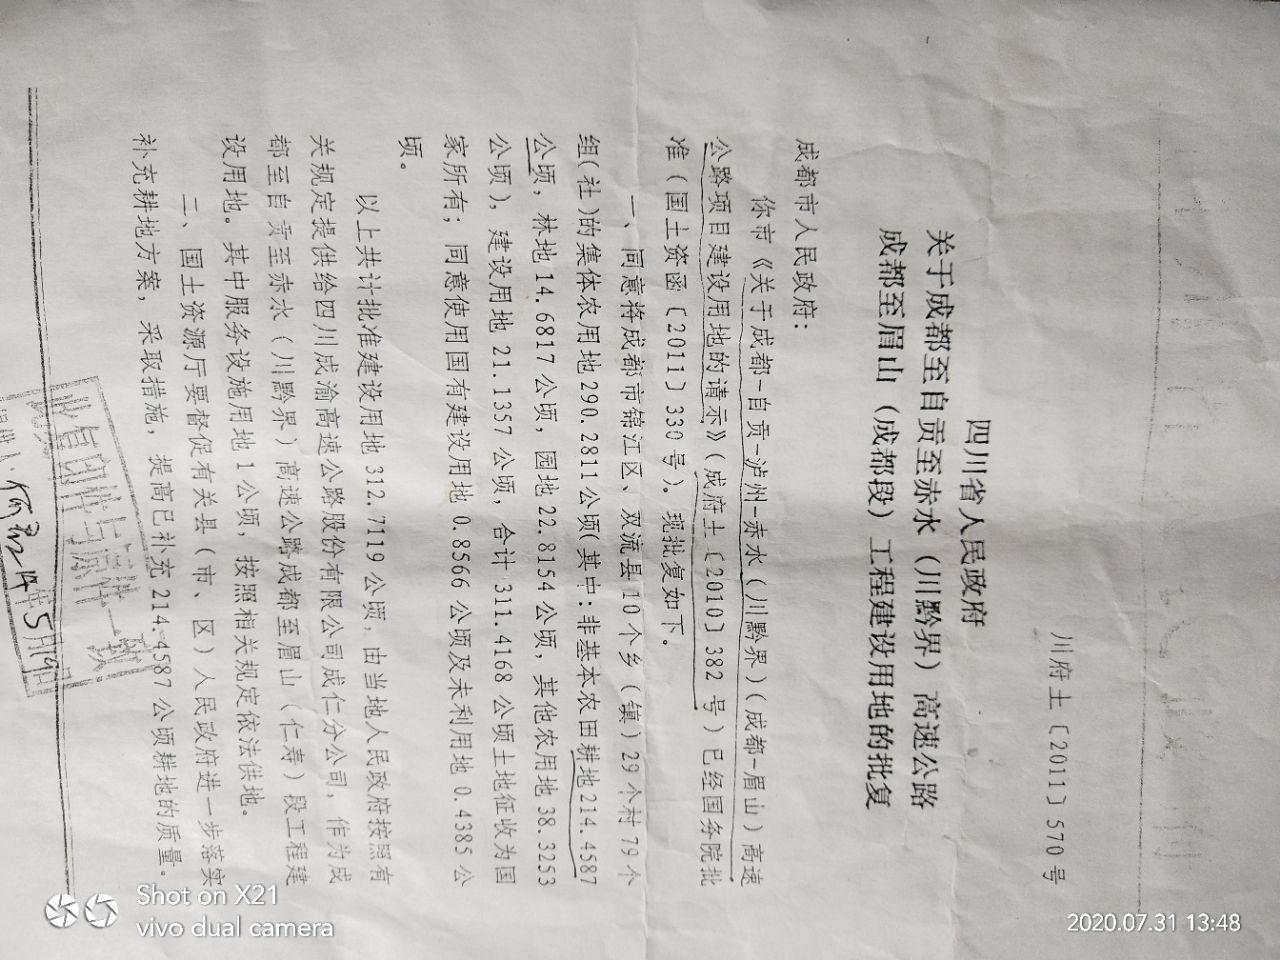 川府土〔2011〕570号
四川省人民政府
关于成都至自贡至赤水（川黔界）高速公路
成都至眉山（成都段）工程建设用地的批复
成都市人民政府：
你市《关于成都-自贡-泸州-赤水（川黔界）（成都-眉山）高速
公路项目建设用地的请示》（成府土〔2010〕382号）已经国务院批
准（国土资函〔2011〕330号）。现批复如下。
一、同意将成都市锦江区、双流县10个乡（镇）29个村79个
组(社)的集体农用地290.2811公顷(其中:非基本农田耕地214.4587
公顷，林地14.6817公顷，园地22.8154公顷，其他农用地38.3253
公顷)，建设用地21.1357公顷，合计311.4168公顷土地征收为国
家所有；同意使用国有建设用地0.8566公顷及未利用地0.4385公
顷。
以上共计批准建设用地312.7119公顷，由当地人民政府按照有
关规定提供给四川成渝高速公路股份有限公司成仁分公司，作为成
都至自贡至赤水（川黔界）高速公路成都至眉山（仁寿）段工程建
设用地。其中服务设施用地1公顷，按照相关规定依法供地。
二、国土资源厅要督促有关县（市、区）人民政府进一步落实
补充耕地方案，采取措施，提高已补充214.4587公顷耕地的质量。
与原件一致
5月19日
Shot on X21
vivo dual camera
2020.07.31 13:48